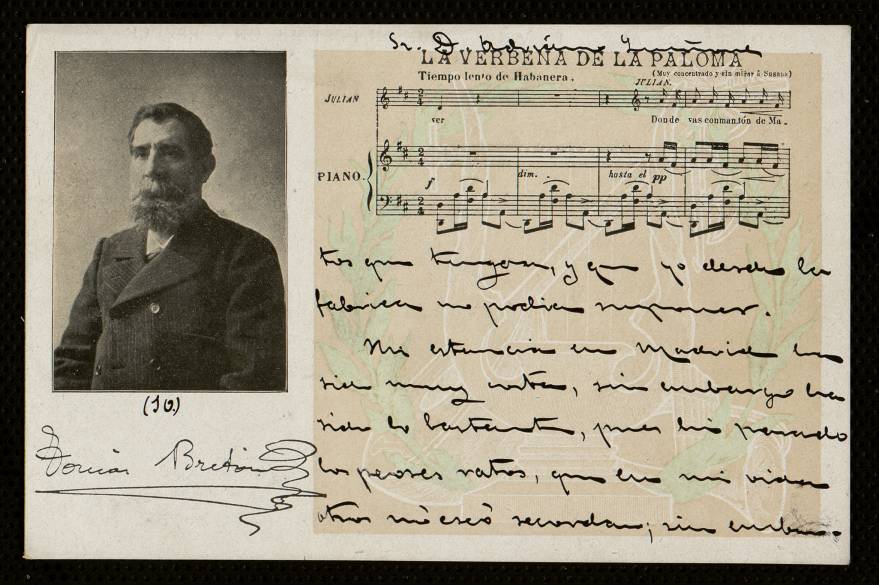 Sr. D. Adrián
LA VERBENA DE LA PALOMA
Tiempo lento de Habanera.
(Muy concentrado y sin mirar á Susana)
JULIAN.
JULIAN
ver
Donde vas con mantón de Ma-
PIANO.
f
dim.
hasta el pp
tos que tengan, y que yo desde la
fabrica no podia suponer.
Mi estancia en Madrid ha
sido muy corta, sin embargo ha
sido lo bastante, pues he pasado
los peores ratos, que en mi vida
otros ni creo recordar; sin embar-
(10.)
Tomás Bretón